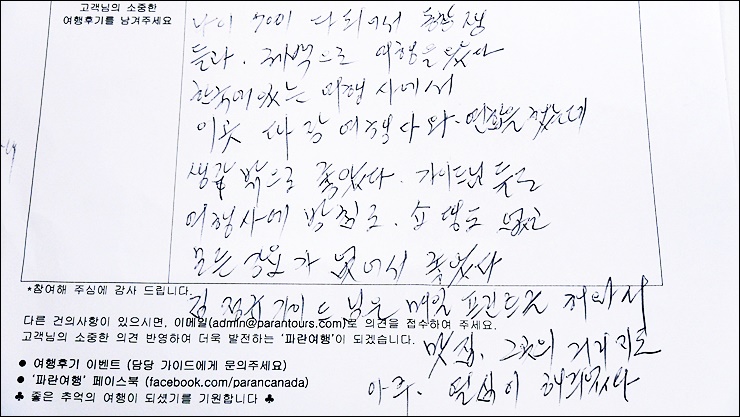 고객님의 소중한
여행후기를 남겨주세요
나이 70이 다 되어서 동창생
들과. 퀘백으로 여행을 왔다
한국에 있는 여행사에서
이곳 파란 여행사와. 연합을 했는데
생각 밖으로 좋았다. 가이드님들은
여행사에 방침도. 쇼핑도 없고
모든 강요가 없어서 좋았다
*참여해 주심에 감사 드립니다.
가이드 님은 매일 프린트를 해와서
다른 건의사항이 있으시면, 이메일(admin@parantours.com)로 의견을 접수하여 주세요.
고객님의 소중한 의견 반영하여 더욱 발전하는 '파란여행'이 되겠습니다.
맛집. 그곳의 거리 지도
● 여행후기 이벤트 (담당 가이드에게 문의주세요)
● '파란여행' 페이스북 (facebook.com/parancanada)
아주. 열심히 해주었다
♣ 좋은 추억의 여행이 되셨기를 기원합니다 ♣